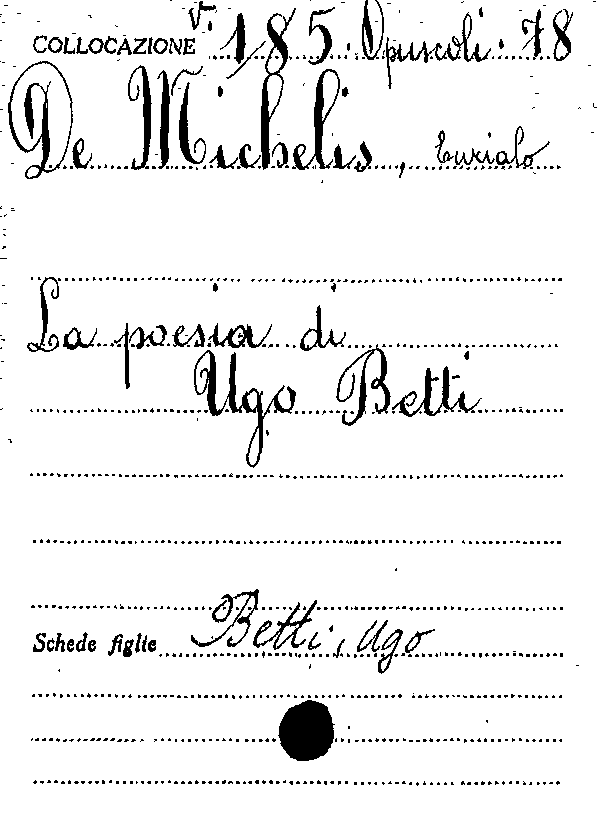 COLLOCAZIONE V. 185. Opuscoli. 78
De Michelis, Eurialo
La poesia di
Ugo Betti
Schede figlie Betti, Ugo